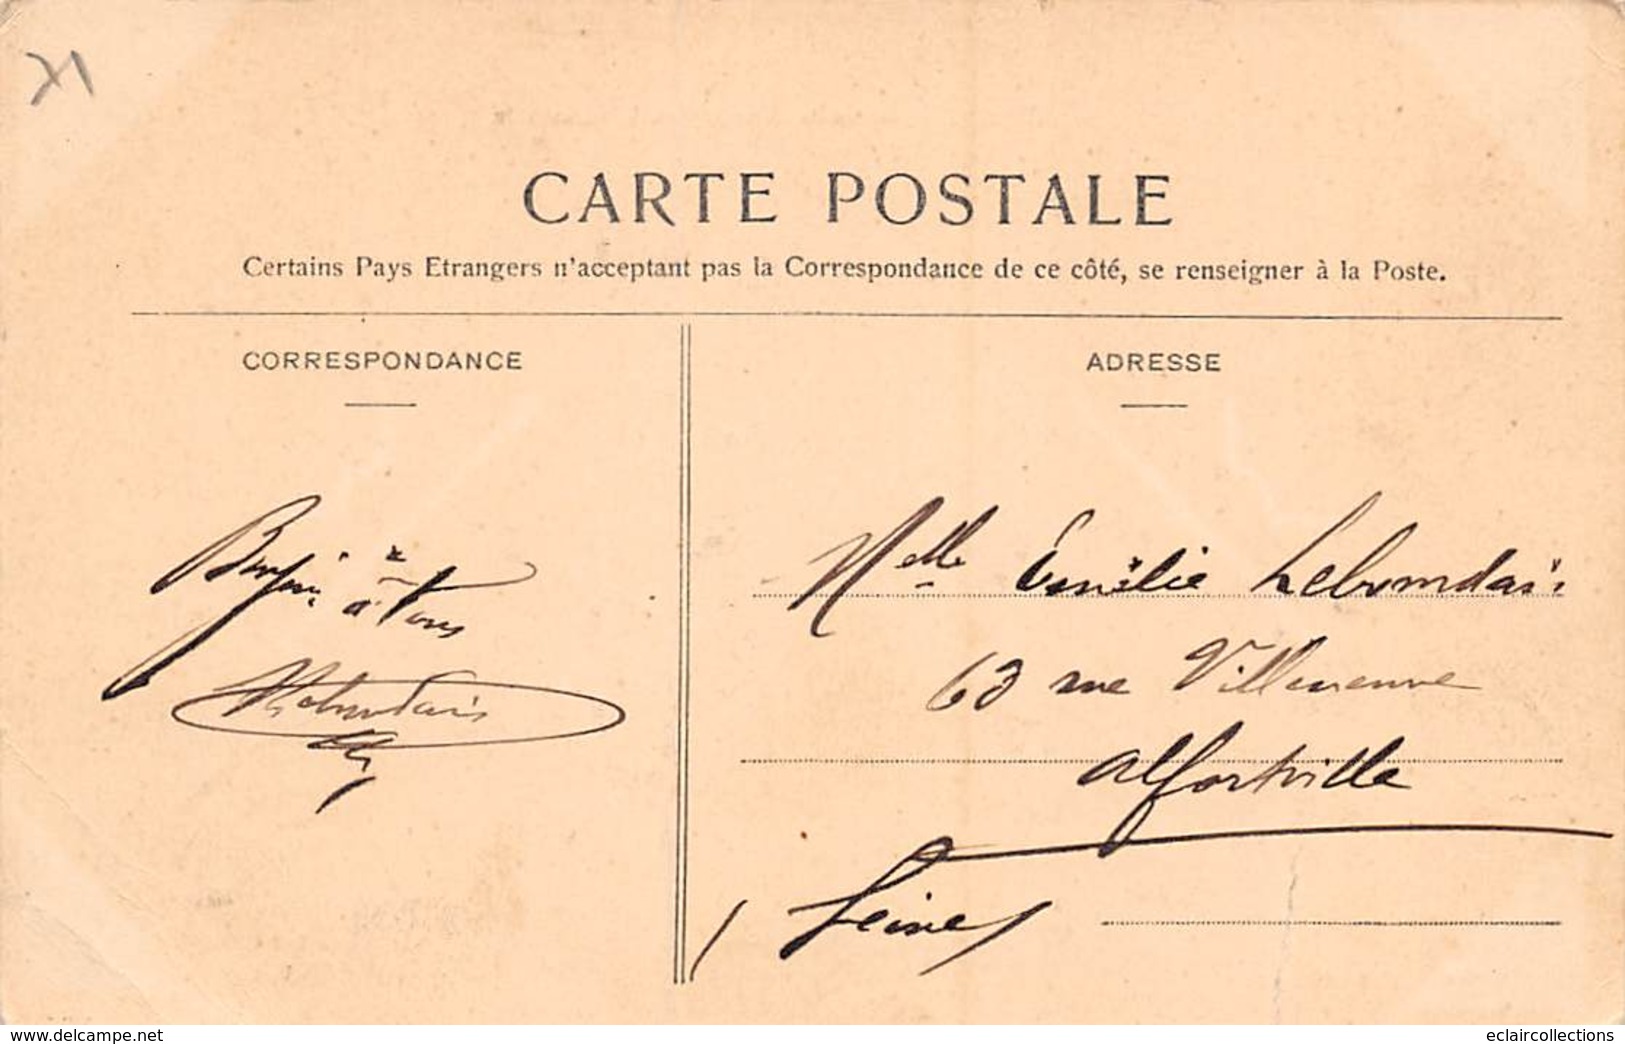 71
CARTE POSTALE
Certains Pays Etrangers n'acceptant pas la Correspondance de ce côté, se renseigner à la Poste.
CORRESPONDANCE
à tous
ADRESSE
Melle Emélie
63 rue Villeneuve
Alfortville
(Seine)
www.delcampe.net
eclaircollections